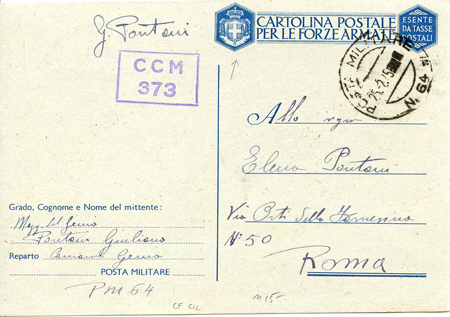 G. Pontani
CARTOLINA POSTALE
PER LE FORZE ARMATE
ESENTE
DA TASSE
POSTALI
CCM
373
POSTA MILITARE
N. 64
Elena Pontani
Via Orti della Farnesina
N° 50
Roma
Grado, Cognome e Nome del mittente:
Magg. del Genio
Pontani Giuliano
Reparto Comando Genio
POSTA MILITARE
PM 64